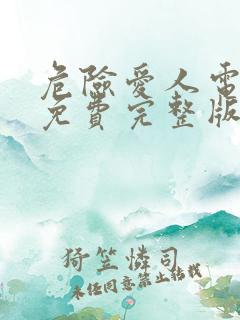 危險愛人電
免費完整版
猗笠憐司
未经同意禁止转载